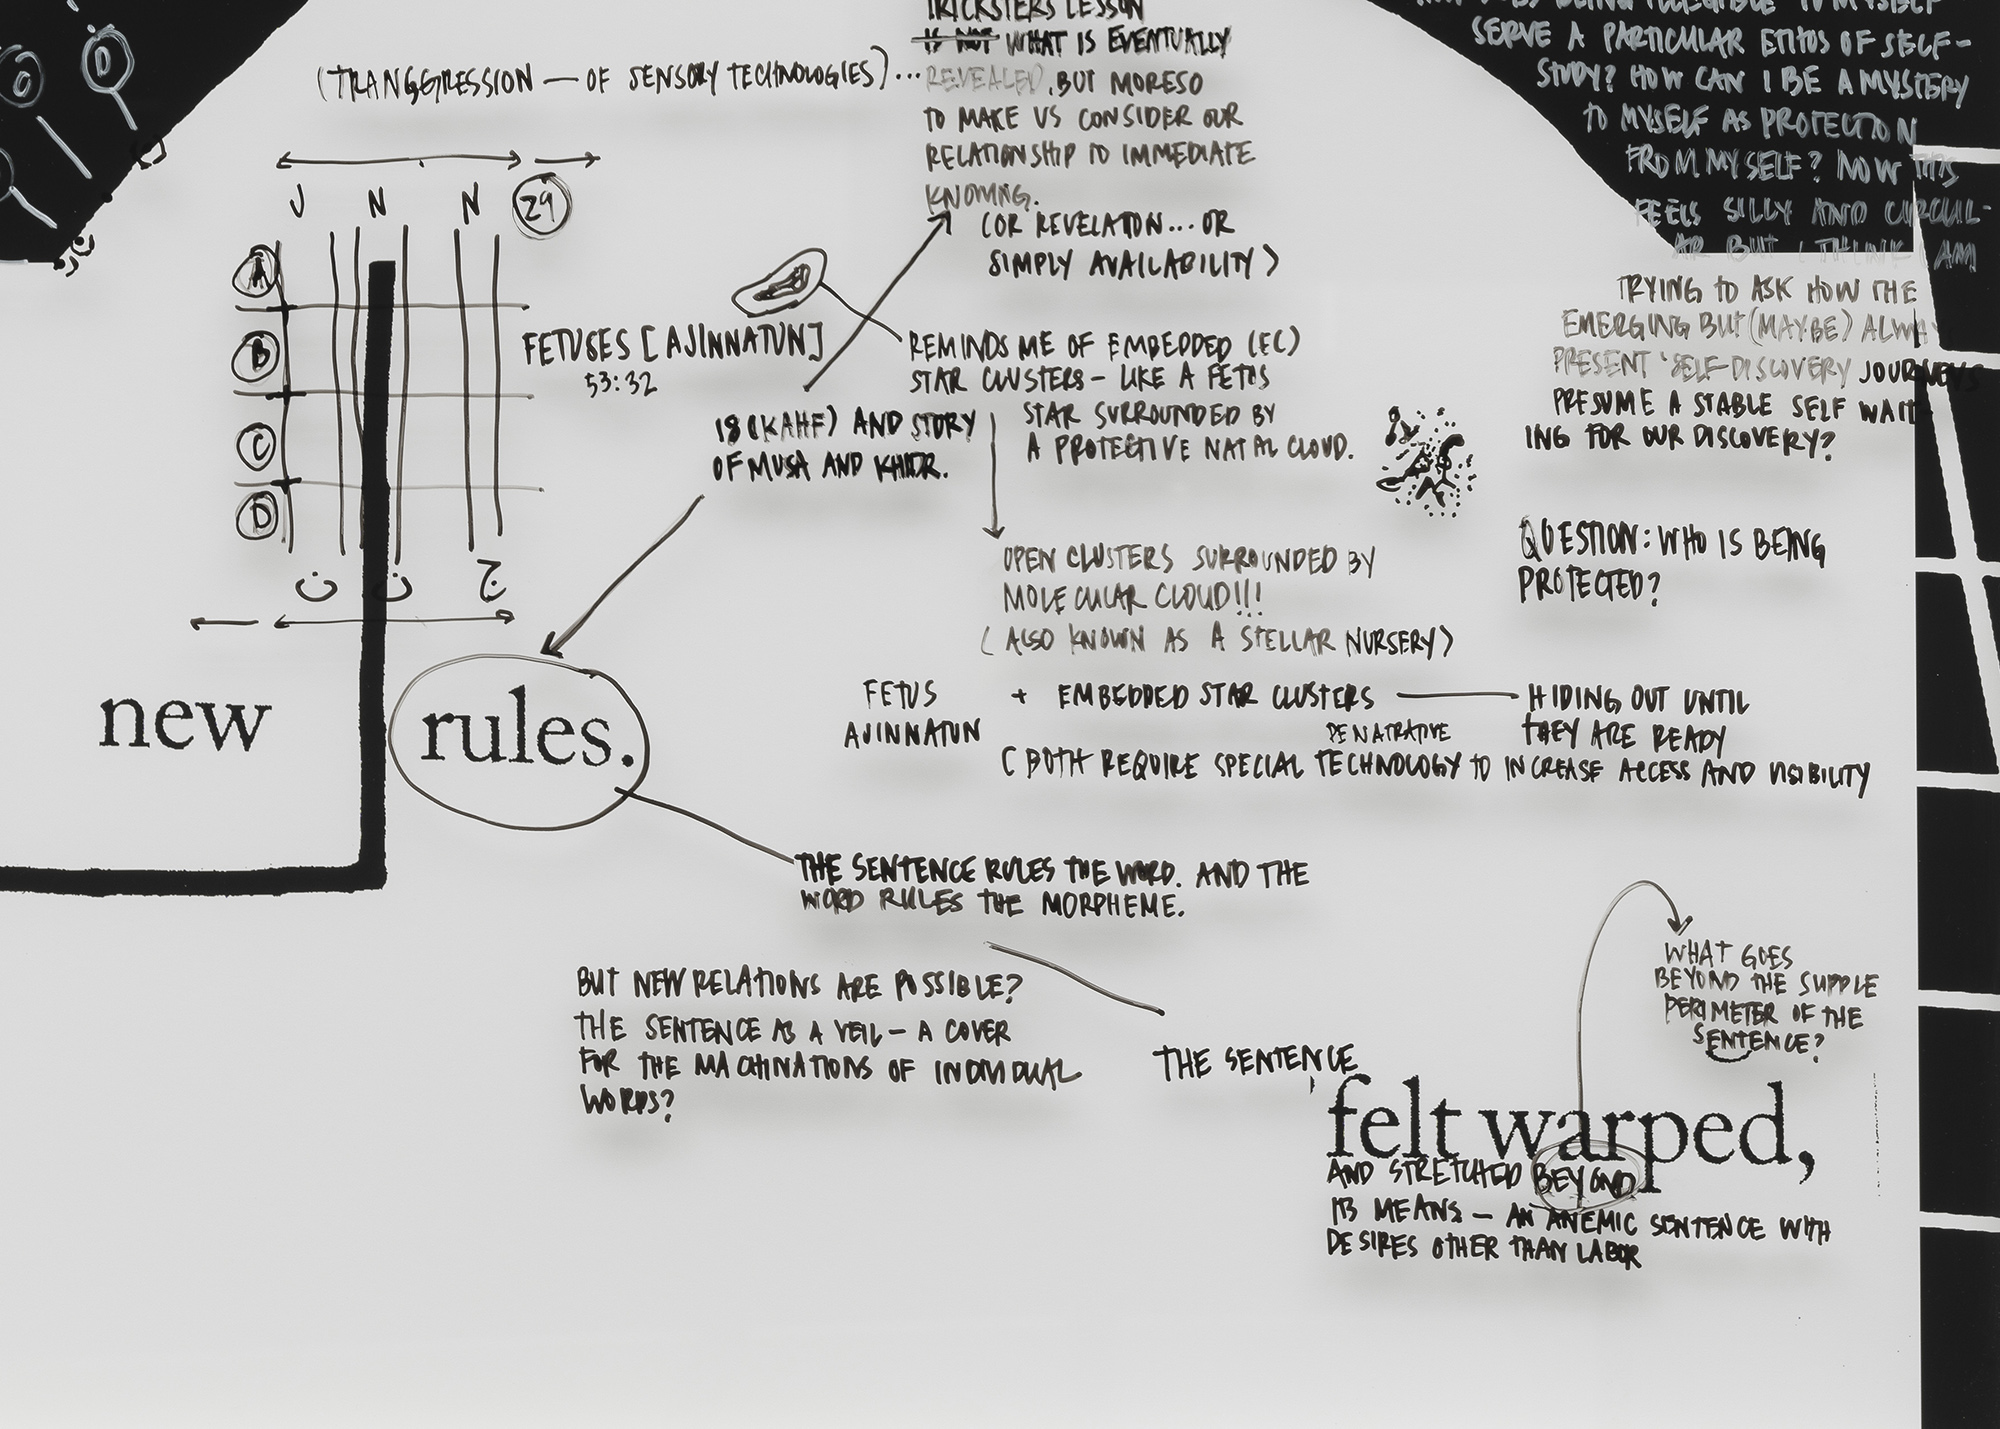 TRICKSTERS LESSON
IS NOT WHAT IS EVENTUALLY
(TRANGGRESSION — OF SENSORY TECHNOLOGIES)...
REVEALED, BUT MORESO
TO MAKE US CONSIDER OUR
RELATIONSHIP TO IMMEDIATE
KNOWING.
(OR REVELATION... OR
SIMPLY AVAILABILITY)
SERVE A PARTICULAR ETHOS OF SELF-
STUDY? HOW CAN I BE A MYSTERY
TO MYSELF AS PROTECTION
FROM MYSELF? NOW THIS
FEELS SILLY AND CIRCUL-
AR BUT I THINK I AM
TRYING TO ASK HOW THE
EMERGING BUT (MAYBE) ALWAY
PRESENT 'SELF-DISCOVERY JOURNEYS
PRESUME A STABLE SELF WAIT-
ING FOR OUR DISCOVERY?
QUESTION: WHO IS BEING
PROTECTED?
J N N 29
A
B
C
D
ن ن ج
FETUSES [AJINNATUN]
53:32
18 (KAHF) AND STORY
OF MUSA AND KHIDR.
REMINDS ME OF EMBEDDED (EC)
STAR CLUSTERS – LIKE A FETUS
STAR SURROUNDED BY
A PROTECTIVE NATAL CLOUD.
OPEN CLUSTERS SURROUNDED BY
MOLECULAR CLOUD!!!
(ALSO KNOWN AS A STELLAR NURSERY)
FETUS + EMBEDDED STAR CLUSTERS — HIDING OUT UNTIL
AJINNATUN
THEY ARE READY
PENATRATIVE
(BOTH REQUIRE SPECIAL TECHNOLOGY TO INCREASE ACCESS AND VISIBILITY
new rules.
THE SENTENCE RULES THE WORD. AND THE
WORD RULES THE MORPHEME.
BUT NEW RELATIONS ARE POSSIBLE?
THE SENTENCE AS A VEIL – A COVER
FOR THE MACHINATIONS OF INDIVIDUAL
WORDS?
WHAT GOES
BEYOND THE SUPPLE
PERIMETER OF THE
SENTENCE?
THE SENTENCE
felt warped,
AND STRETCHED BEYOND
ITS MEANS – AN ANEMIC SENTENCE WITH
DESIRES OTHER THAN LABOR